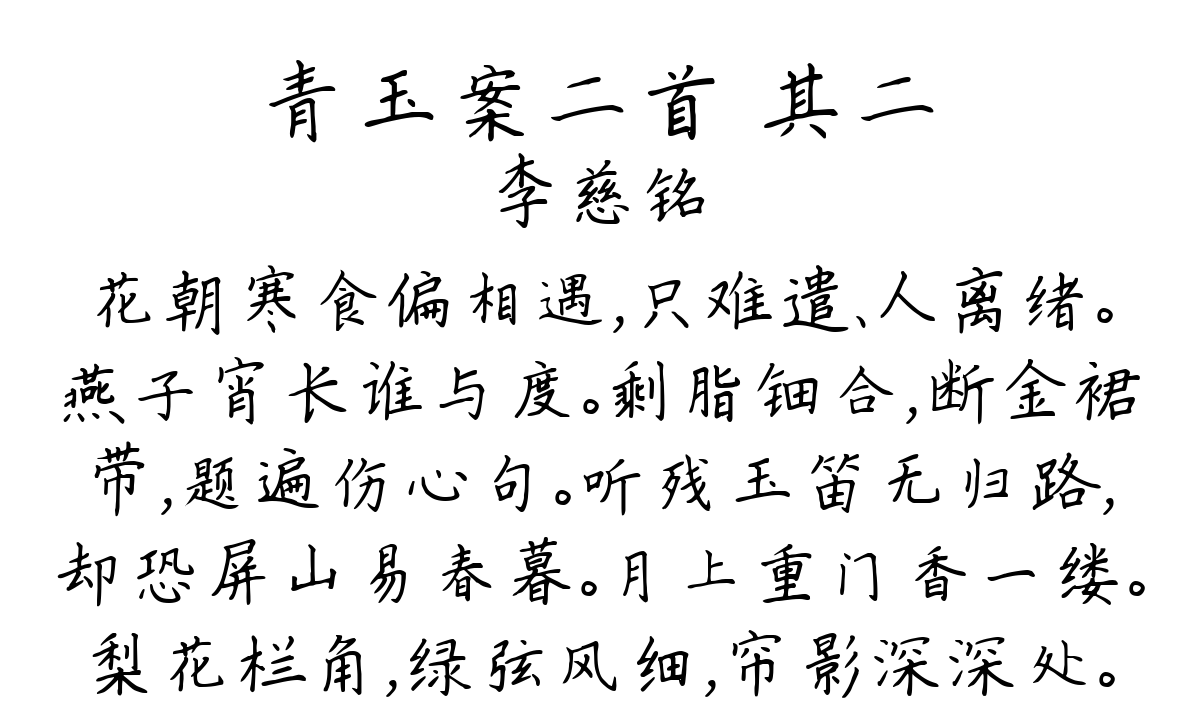 青玉案二首 其二
李慈铭
花朝寒食偏相遇,只难遣、人离绪。
燕子宵长谁与度。剩脂钿合,断金裙
带,题遍伤心句。听残玉笛无归路,
却恐屏山易春暮。月上重门香一缕。
梨花栏角,绿弦风细,帘影深深处。